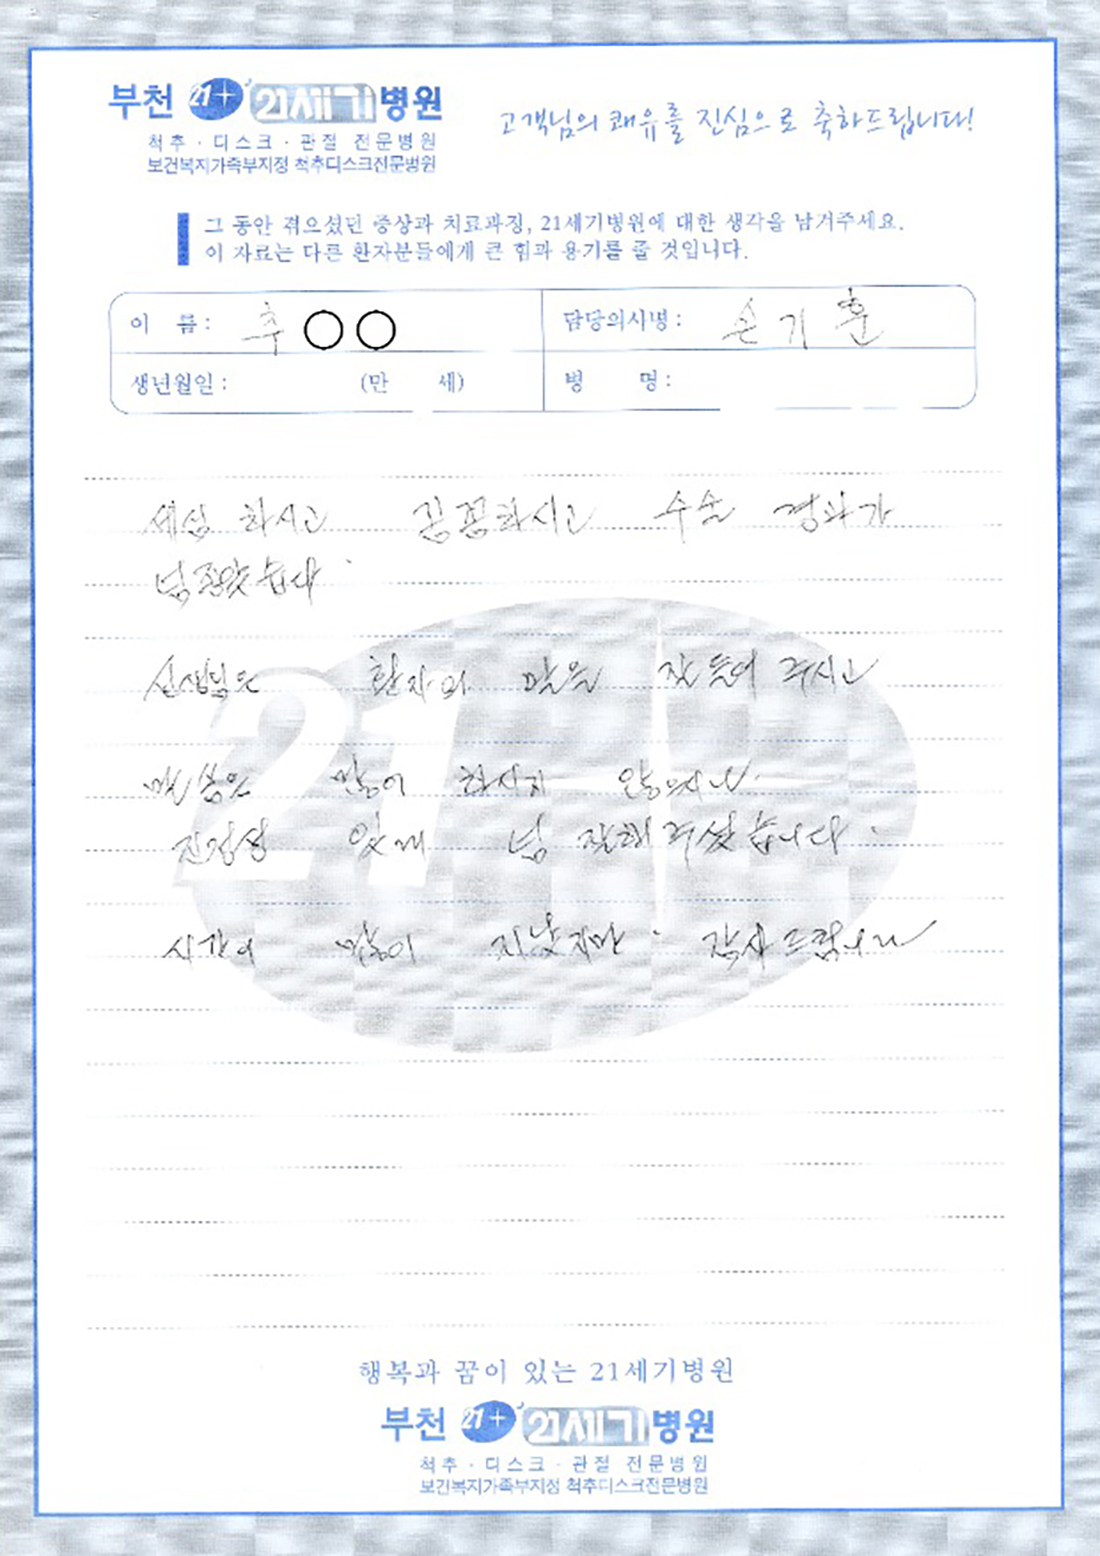 부천 21+ 21세기병원
척추 · 디스크 · 관절 전문병원
보건복지가족부지정 척추디스크전문병원
고객님의 쾌유를 진심으로 축하드립니다!
그 동안 겪으셨던 증상과 치료과정, 21세기병원에 대한 생각을 남겨주세요.
이 자료는 다른 환자분들에게 큰 힘과 용기를 줄 것입니다.
이 름 : 추○○
담당의사명 : 손기훈
생년월일 : (만 세)
병 명 :
세심 하시고 꼼꼼하시고 수술 경과가
넘 좋았습니다.
선생님은 환자의 말을 잘 들어 주시고
말씀은 많이 하시지 않으시나
진정성 있게 넘 잘해 주셨습니다.
시간이 많이 지났지만. 감사드립니다
21+
행복과 꿈이 있는 21세기병원
부천 21+ 21세기병원
척추 · 디스크 · 관절 전문병원
보건복지가족부지정 척추디스크전문병원